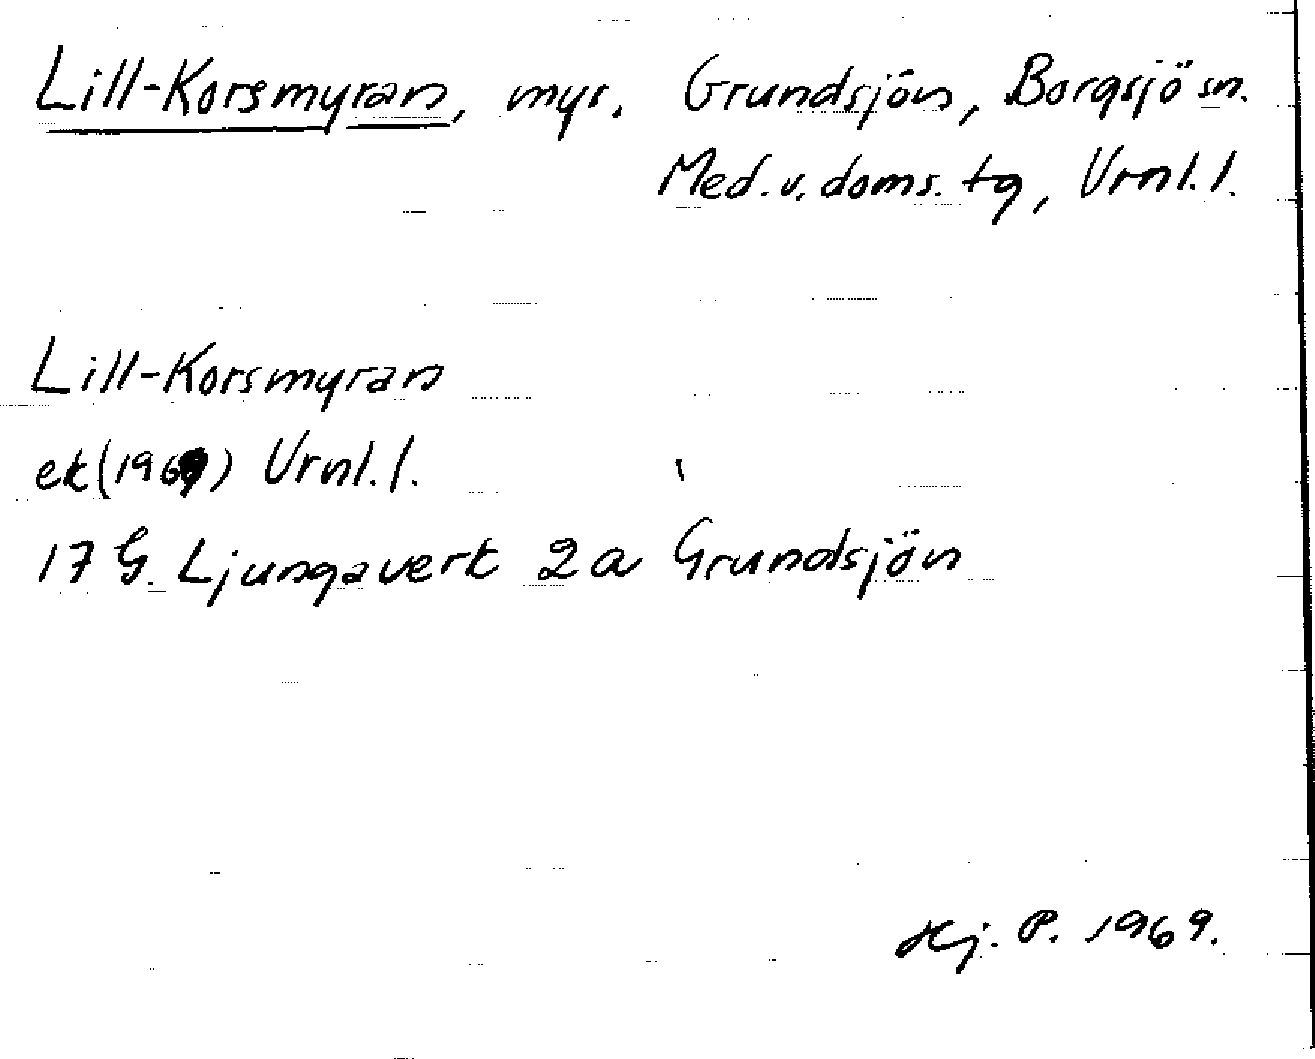 Lill-Korsmyran, myr, Grundsjön, Borgsjö sn.
Med. v. doms. tg, Vrnl. l.
Lill-Korsmyran
ek (1969) Vrnl. l.
17 G. Ljungaverk 2a Grundsjön
Hj. P. 1969.